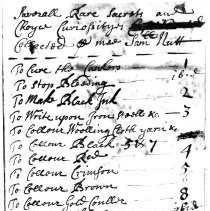 Severall Rare Secrets and
Choyce Curiositys
Collected by mee Sam Nutt
To Cure the Cankers 1
To Stop Bleeding ibid
To Make Black Ink 2
To Write upon Iron &c 3
To Collour Woolling Cloth yarn &c
To Collour Black 5 & 7 4
To Collour Red
To Collour Crimson 5
To Collour Brown 8
To Collour Gold Couller ibid